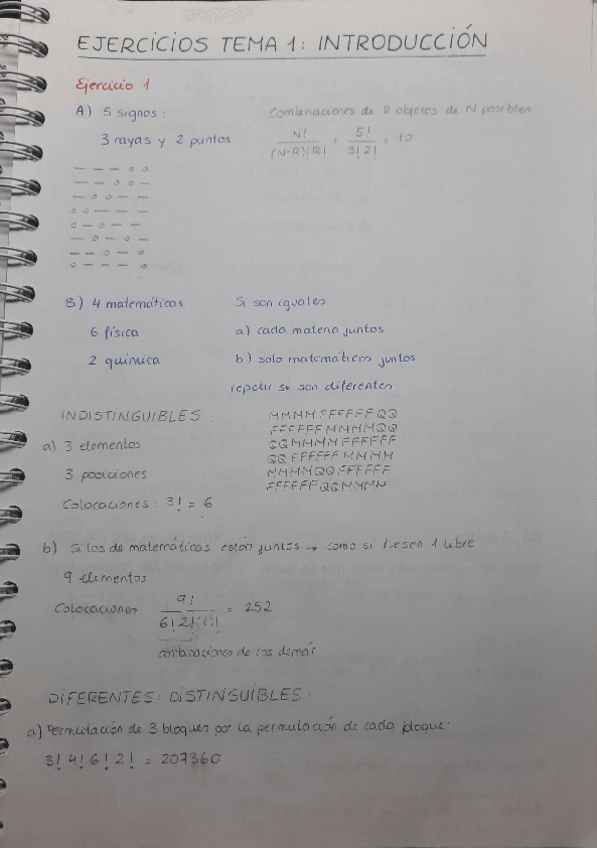 EJERCICIOS TEMA 1: INTRODUCCIÓN
Ejercicio 1
A) 5 signos:
3 rayas y 2 puntos
Combinaciones de R objetos de N posibles
N! / (N-R)!R! = 5! / 3!2! = 10
— — — o o
— — o o —
— o o — —
o o — — —
o — o — —
— o — o —
— — o — o
o — — — o
B) 4 matemáticas
6 física
2 química
Si son iguales
a) cada materia juntos
b) solo matemáticas juntos
repetir si son diferentes
INDISTINGUIBLES:
a) 3 elementos
3 posiciones
Colocaciones: 3! = 6
MMMMFFFFFFQQ
FFFFFFMMMMQQ
QQMMMMFFFFFF
QQFFFFFFMMMM
MMMMQQFFFFFF
FFFFFFQQMMMM
b) Si los de matemáticas están juntos → como si fuesen 1 libre
9 elementos
Colocaciones 9! / 6!2!(1)! = 252
combinaciones de los demás
DIFERENTES: DISTINGUIBLES:
a) Permutación de 3 bloques por la permutación de cada bloque:
3! 4! 6! 2! = 207360